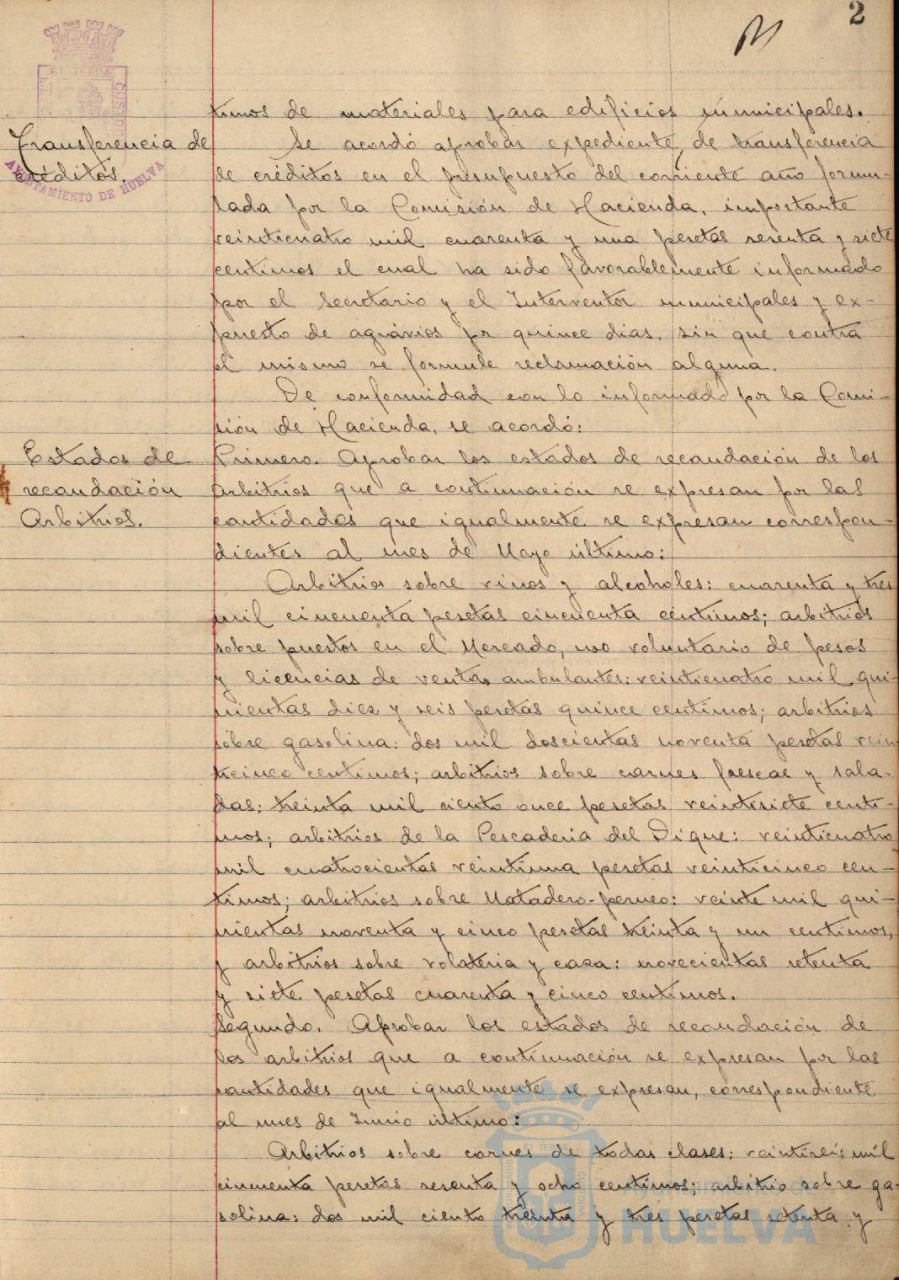 2
timos de materiales para edificios municipales.
Transferencia de
créditos.
AYUNTAMIENTO DE HUELVA
Se acordó aprobar expediente, de transferencia
de créditos en el presupuesto del corriente año formu-
lada por la Comisión de Hacienda, importante
veinticuatro mil cuarenta y una pesetas sesenta y siete
centimos el cual ha sido favorablemente informado
por el Secretario y el Interventor municipales y ex-
puesto de agravios por quince dias, sin que contra
el mismo se formule reclamación alguna.
De conformidad con lo informado por la Comi-
sión de Hacienda, se acordó:
Estados de
recaudación
Arbitrios.
Primero. Aprobar los estados de recaudación de los
arbitrios que a continuación se expresan por las
cantidades que igualmente se expresan correspon-
dientes al mes de Mayo último:
Arbitrios sobre vinos y alcoholes: cuarenta y tres
mil cincuenta pesetas cincuenta centimos; arbitrios
sobre puestos en el Mercado, uso voluntario de pesos
y licencias de ventas ambulantes: veinticuatro mil qui-
nientas diez y seis pesetas quince centimos; arbitrios
sobre gasolina: dos mil doscientas noventa pesetas vein-
ticinco centimos; arbitrios sobre carnes frescas y sala-
das: treinta mil ciento once pesetas veintisiete centi-
mos; arbitrios de la Pescaderia del Dique: veinticuatro
mil cuatrocientas veintiuna pesetas veinticinco cen-
timos; arbitrios sobre Matadero-porneo: veinte mil qui-
nientas noventa y cinco pesetas treinta y un centimos,
y arbitrios sobre volateria y caza: novecientas setenta
y siete pesetas cuarenta y cinco centimos.
Segundo. Aprobar los estados de recaudación de
los arbitrios que a continuación se expresan por las
cantidades que igualmente se expresan, correspondiente
al mes de Junio último:
Arbitrios sobre carnes de todas clases: veintiseis mil
cincuenta pesetas sesenta y ocho centimos; arbitrio sobre ga-
solina: dos mil ciento treinta y tres pesetas setenta y
Ayuntamiento de
HUELVA